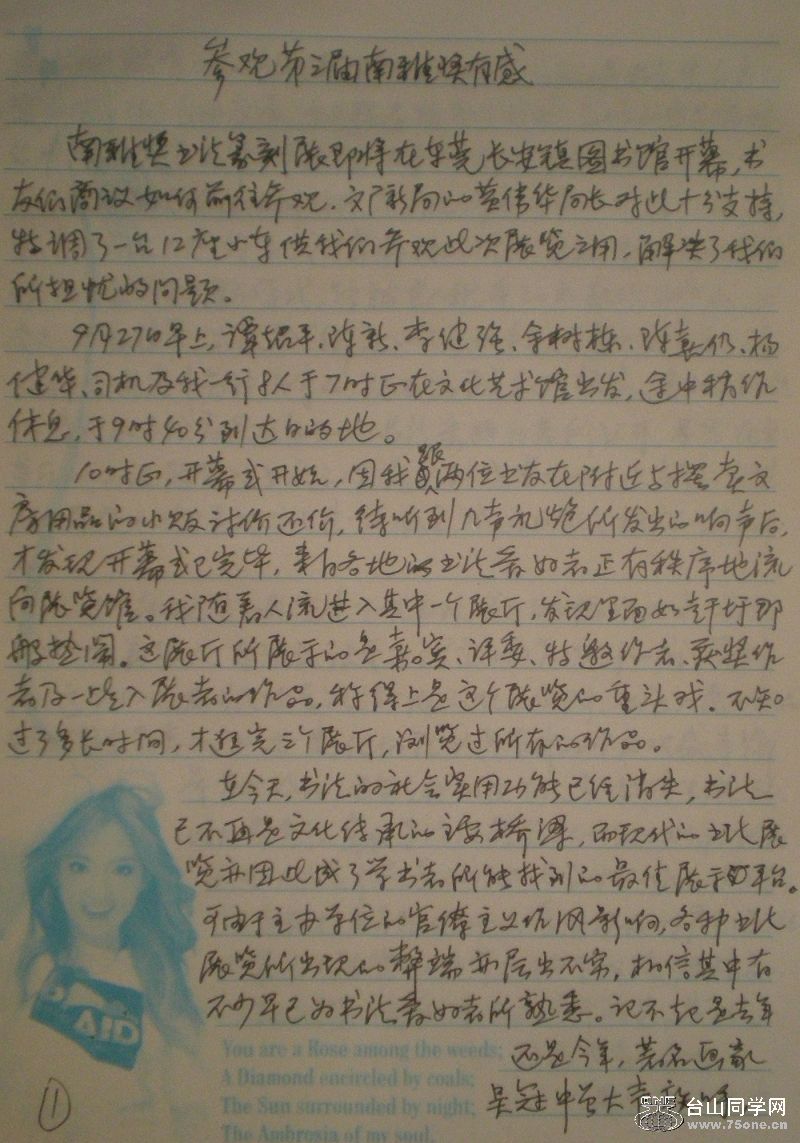 参观第三届南雅奖有感
南雅奖书法篆刻展即将在东莞长安镇图书馆开幕，书
友们商议如何前往参观．文广新局的黄伟华局长对此十分支持，
特调了一台12座小车供我们参观此次展览之用，解决了我们
所担忧的问题。
9月27日早上，谭超平、陈新、李健强、余树栋、陈嘉仍、杨
健华、司机及我一行8人于7时正在文化艺术馆出发，途中稍作
休息，于9时40分到达目的地。
10时正，开幕式开始，因我跟两位书友在附近与摆卖文
房用品的小贩讨价还价，待听到几声礼炮所发出的响声后，
才发现开幕式已完毕，来自各地的书法爱好者正有秩序地流
向展览馆。我随着人流进入其中一个展厅，发现里面如赶圩那
般热闹。这展厅所展示的是嘉宾、评委、特邀作者、获奖作
者及一些入展者的作品，称得上是这个展览的重头戏．不知
过了多长时间，才逛完三个展厅，浏览过所有的作品。
在今天，书法的社会实用功能已经消失，书法
已不再是文化传承的主要桥梁，而现代的书法展
览亦因此成了学书者所能找到的最佳展示平台。
可由于主办单位的官僚主义作风影响，各种书法
展览所出现的弊端亦层出不穷，相信其中有
不少早已为书法爱好者所熟悉。记不起是去年
还是今年，著名画家
吴冠中曾大
You are a Rose among the weeds;
A Diamond encircled by coals;
The Sun surrounded by night;
The Ambrosia of my soul.
AID
①
台山同学网
www.75one.cn